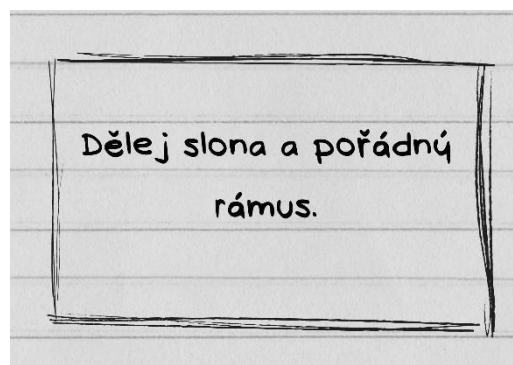 Dělej slona a pořádný
rámus.